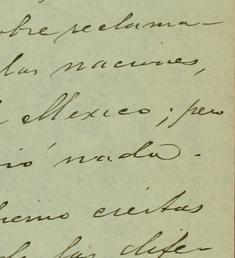 obre reclama-
las naciones,
Mexico; pero
ió nada.
ierno ciertas
de las difer